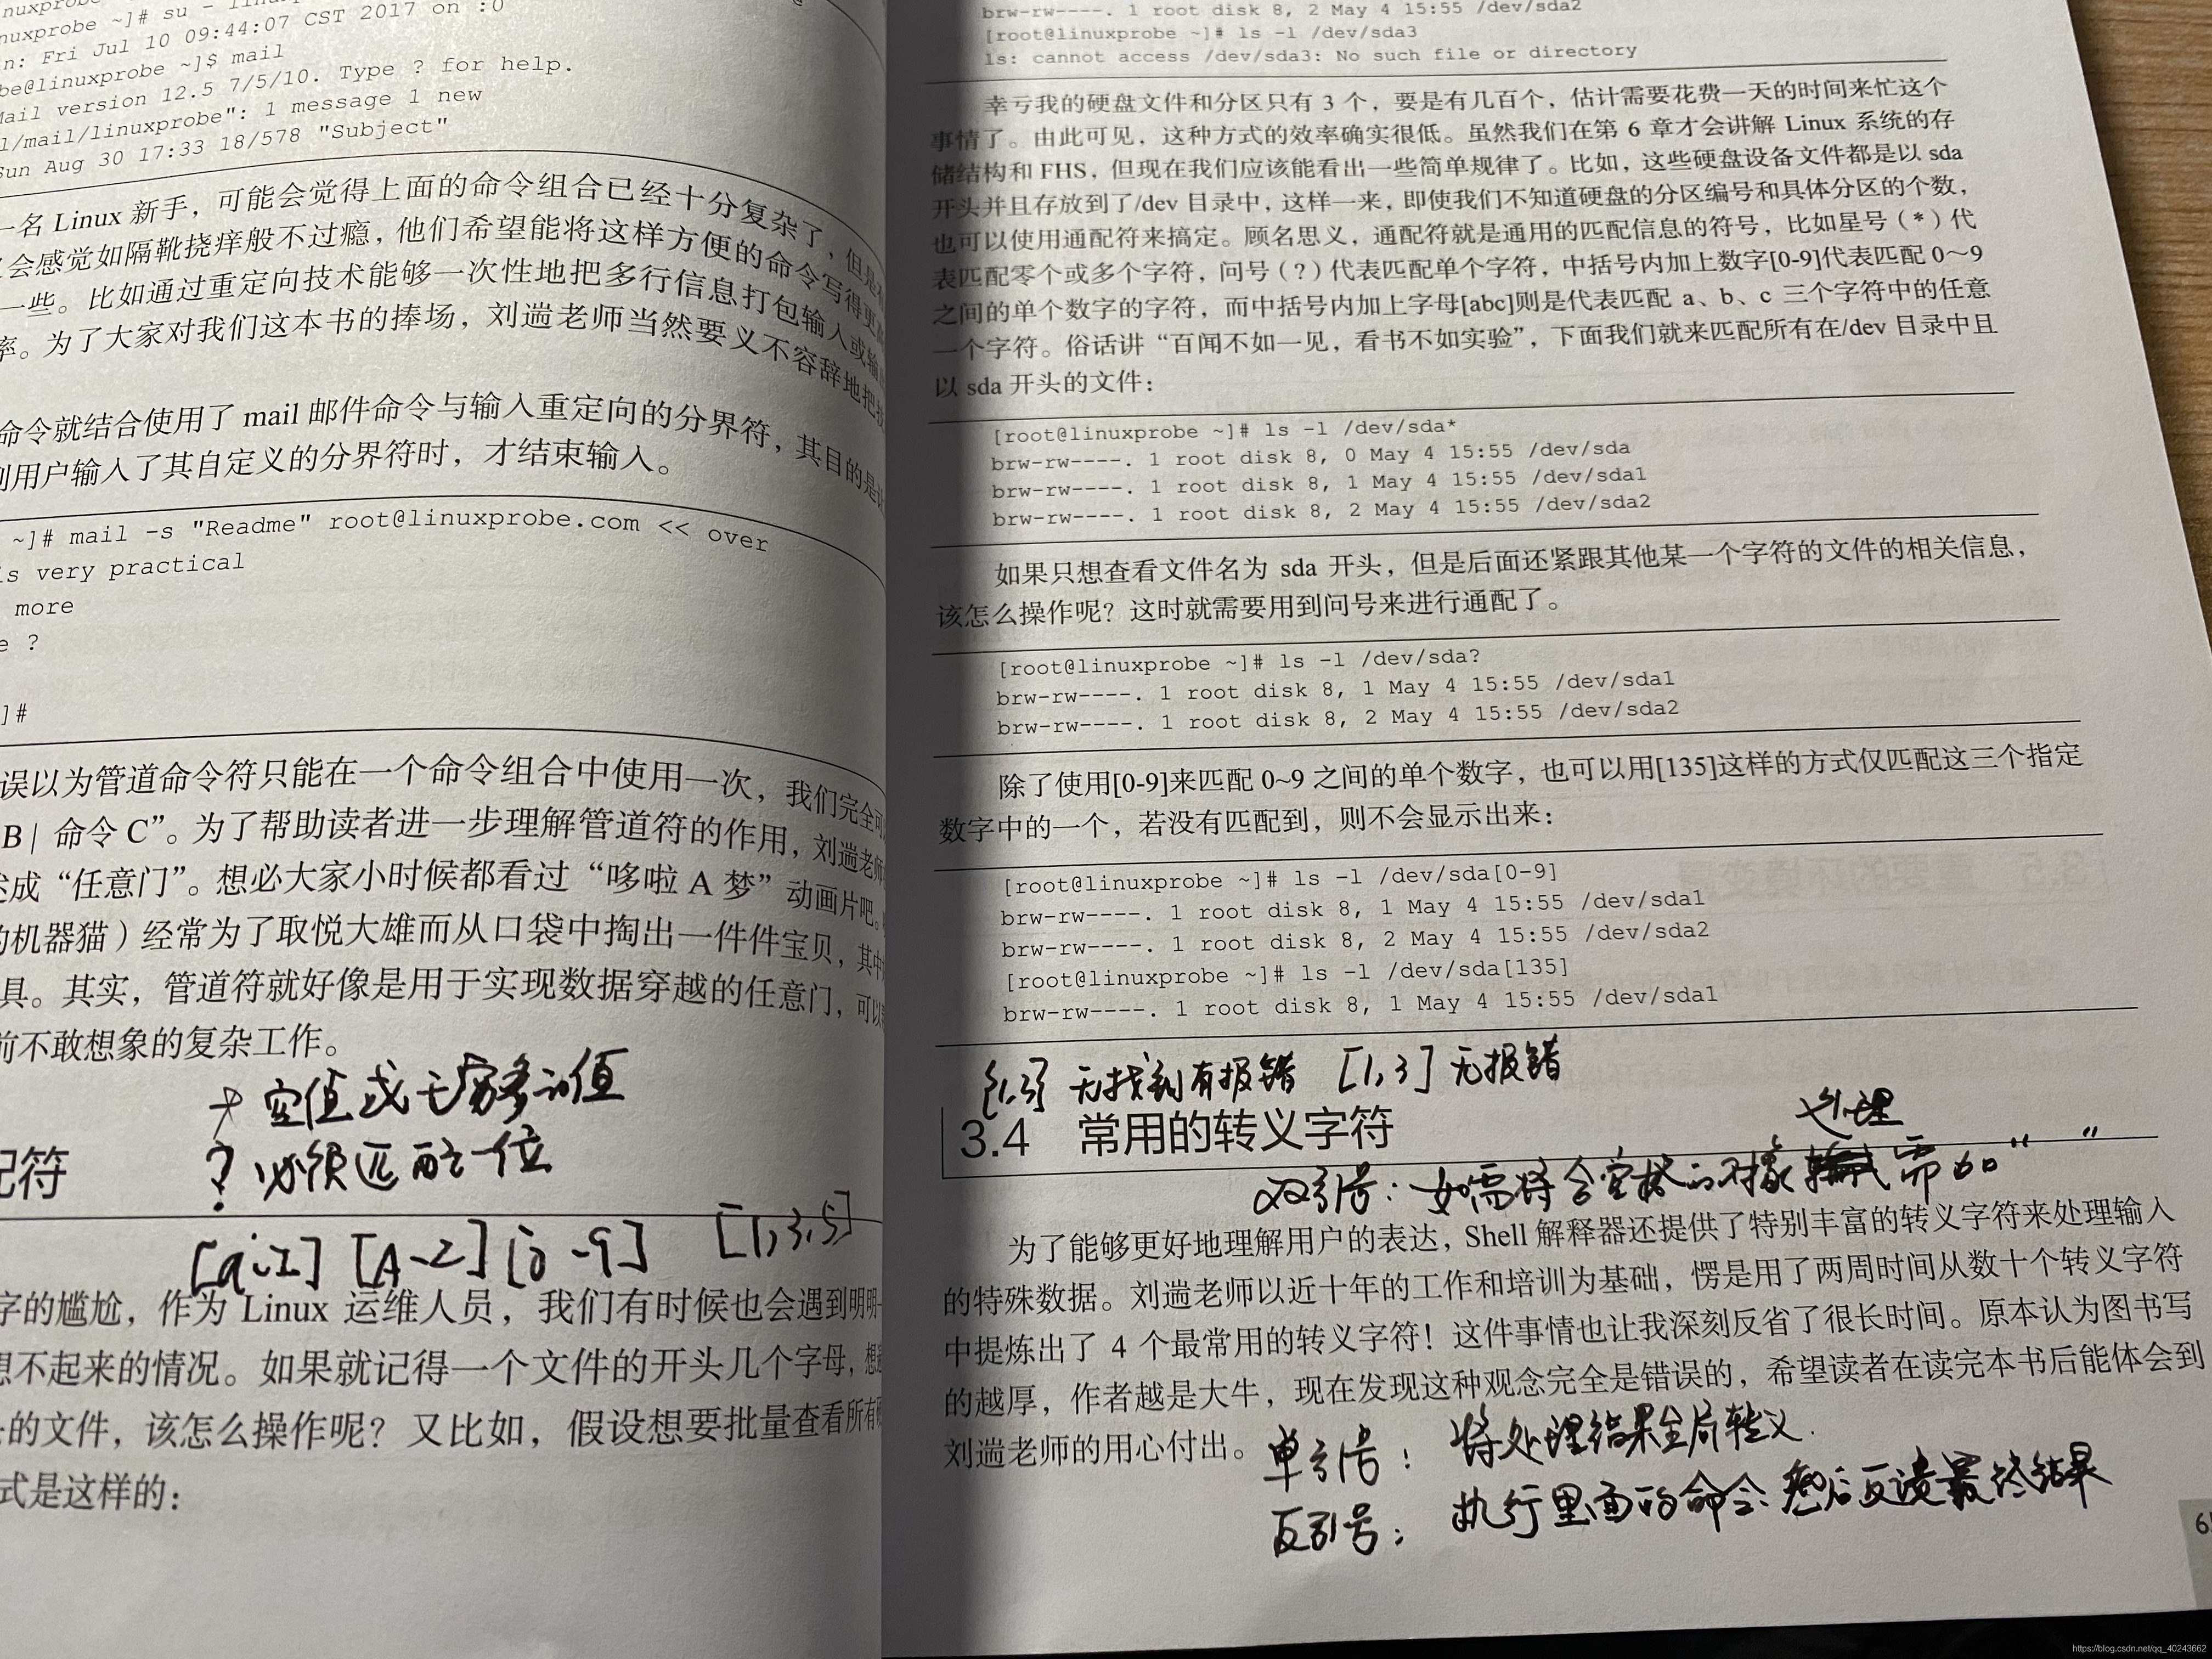 nuxprobe ~]# su - linuxp
n: Fri Jul 10 09:44:07 CST 2017 on :0
be@linuxprobe ~]$ mail
Mail version 12.5 7/5/10. Type ? for help.
l/mail/linuxprobe": 1 message 1 new
Sun Aug 30 17:33 18/578 "Subject"
一名 Linux 新手，可能会觉得上面的命令组合已经十分复杂了，但是
会感觉如隔靴挠痒般不过瘾，他们希望能将这样方便的命令写得更高
一些。比如通过重定向技术能够一次性地把多行信息打包输入或输
率。为了大家对我们这本书的捧场，刘遄老师当然要义不容辞地把
命令就结合使用了 mail 邮件命令与输入重定向的分界符，其目的是
用户输入了其自定义的分界符时，才结束输入。
~]# mail -s "Readme" root@linuxprobe.com << over
s very practical
more
e ?
]#
误以为管道命令符只能在一个命令组合中使用一次，我们完全可
B | 命令 C”。为了帮助读者进一步理解管道符的作用，刘遄老师
成“任意门”。想必大家小时候都看过“哆啦 A 梦”动画片吧。
的机器猫）经常为了取悦大雄而从口袋中掏出一件件宝贝，其中
具。其实，管道符就好像是用于实现数据穿越的任意门，可以
前不敢想象的复杂工作。
* 空值或无穷多的值
? 必须匹配一位
配符
[a-z] [A-Z] [0-9] [1,3,5]
字的尴尬，作为 Linux 运维人员，我们有时候也会遇到明明
想不起来的情况。如果就记得一个文件的开头几个字母，想
的文件，该怎么操作呢？又比如，假设想要批量查看所有
式是这样的：
brw-rw----. 1 root disk 8, 2 May 4 15:55 /dev/sda2
[root@linuxprobe ~]# ls -l /dev/sda3
ls: cannot access /dev/sda3: No such file or directory
幸亏我的硬盘文件和分区只有 3 个，要是有几百个，估计需要花费一天的时间来忙这个
事情了。由此可见，这种方式的效率确实很低。虽然我们在第 6 章才会讲解 Linux 系统的存
储结构和 FHS，但现在我们应该能看出一些简单规律了。比如，这些硬盘设备文件都是以 sda
开头并且存放到了/dev 目录中，这样一来，即使我们不知道硬盘的分区编号和具体分区的个数，
也可以使用通配符来搞定。顾名思义，通配符就是通用的匹配信息的符号，比如星号（*）代
表匹配零个或多个字符，问号（?）代表匹配单个字符，中括号内加上数字[0-9]代表匹配 0～9
之间的单个数字的字符，而中括号内加上字母[abc]则是代表匹配 a、b、c 三个字符中的任意
一个字符。俗话讲“百闻不如一见，看书不如实验”，下面我们就来匹配所有在/dev 目录中且
以 sda 开头的文件：
[root@linuxprobe ~]# ls -l /dev/sda*
brw-rw----. 1 root disk 8, 0 May 4 15:55 /dev/sda
brw-rw----. 1 root disk 8, 1 May 4 15:55 /dev/sda1
brw-rw----. 1 root disk 8, 2 May 4 15:55 /dev/sda2
如果只想查看文件名为 sda 开头，但是后面还紧跟其他某一个字符的文件的相关信息，
该怎么操作呢？这时就需要用到问号来进行通配了。
[root@linuxprobe ~]# ls -l /dev/sda?
brw-rw----. 1 root disk 8, 1 May 4 15:55 /dev/sda1
brw-rw----. 1 root disk 8, 2 May 4 15:55 /dev/sda2
除了使用[0-9]来匹配 0~9 之间的单个数字，也可以用[135]这样的方式仅匹配这三个指定
数字中的一个，若没有匹配到，则不会显示出来：
[root@linuxprobe ~]# ls -l /dev/sda[0-9]
brw-rw----. 1 root disk 8, 1 May 4 15:55 /dev/sda1
brw-rw----. 1 root disk 8, 2 May 4 15:55 /dev/sda2
[root@linuxprobe ~]# ls -l /dev/sda[135]
brw-rw----. 1 root disk 8, 1 May 4 15:55 /dev/sda1
{1,3} 无找到有报错 [1,3] 无报错
3.4 常用的转义字符
处理
双引号：如需将含空格的对象 需加“ ”
为了能够更好地理解用户的表达，Shell 解释器还提供了特别丰富的转义字符来处理输入
的特殊数据。刘遄老师以近十年的工作和培训为基础，愣是用了两周时间从数十个转义字符
中提炼出了 4 个最常用的转义字符！这件事情也让我深刻反省了很长时间。原本认为图书写
的越厚，作者越是大牛，现在发现这种观念完全是错误的，希望读者在读完本书后能体会到
刘遄老师的用心付出。
单引号：将处理结果全局转义.
反引号：执行里面的命令.然后反馈最终结果
https://blog.csdn.net/qq_40243662